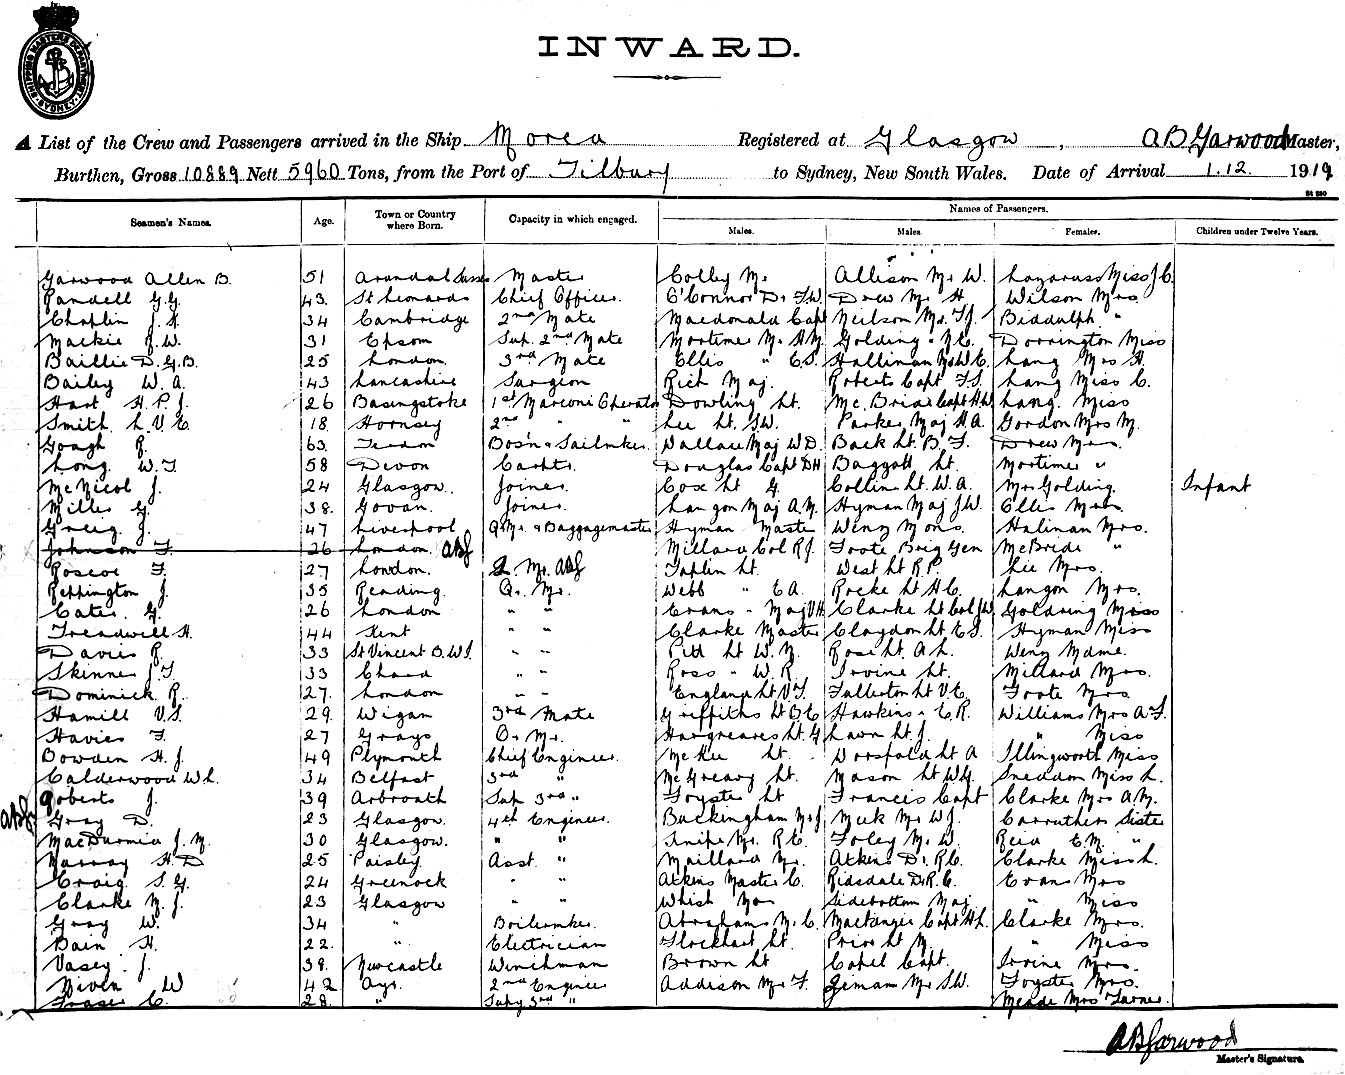 SHIPPING MASTERS DEPARTMENT
SYDNEY
INWARD.
A List of the Crew and Passengers arrived in the Ship Morea Registered at Glasgow, AB Garwood Master,
Burthen, Gross 10889 Nett 5960 Tons, from the Port of Tilbury to Sydney, New South Wales. Date of Arrival 1.12. 1919
Seamen's Names. Age. Town or Country where Born. Capacity in which engaged. Names of Passengers.
Males. Males. Females. Children under Twelve Years.
Garwood Allen B. 51 Arundal Sussex Master Colley Mr. Allison Mr W. Lazarus Miss J C.
Randell G.G. 43. St Leonards Chief Officer. O'Connor Dr T.W. Drew Mr H Wilson Mrs
Chaplin J. H. 34 Cambridge 2nd Mate Macdonald Capt Neilson Mr. T.J. Biddulph "
Mackie J. W. 31 Epsom Sup. 2nd Mate Mortimer Mr H.M. Golding " Dorrington Miss
Baillie D.G.B. 25 London 3rd Mate Ellis " C.S. Hallinan Mr W.C. Lang Mrs H.
Bailey W. A. 43 Lancashire Surgeon Rich Maj. Roberts Capt F.S. Lang Miss C.
Hart H. P. J. 26 Basingstoke 1st Marconi Operator Dowling Lt. Mc Briar Capt Lang Miss
Smith L. V. E. 18 Hornsey 2nd " " Lee Lt. S.W. Parker Maj H.A. Gordon Mrs M.
Gough R. 63. Bosn & Sailmker. Wallace Maj W.D. Back Lt. B. F. Drew Mrs.
Long W. T. 58 Devon Carptr. Douglas Capt D.H. Baggott Lt. Mortimer "
McNicol J. 24 Glasgow. Joiner. Cox Lt G. Collin Lt. W. A. Mrs Golding. Infant
Miller G. 38. Govan. Joiner. Langon Maj A.M. Hyman Maj J.W. Ellis Mrs.
Greig J. 47 Liverpool Q.Mr. & Baggagemaster Hyman Master Weny Mons. Halinan Mrs.
Johnson F. 26 London. ABG Millard Col R.J. Foote Brig Gen McBride "
Roscoe F. 27 London. Q. Mr. ABG Taplin Lt. West Lt R.P. Lee Mrs.
Reppington J. 35 Reading Q. Mr. Webb " E A. Rocke Lt H.C. Langon Mrs.
Cater G. 26 London " " Evans " Maj V.H. Clarke Lt Col J.W. Goldring Miss
Treadwell H. 44 Kent " " Clarke Master Claydon Lt E.J. Hyman Miss
Davies R. 33 St Vincent B.W.I. " " Pitt Lt W. M. Rose Lt. A.L. Weny Mdme.
Skinner J.T. 33 Chard " " Ross " W. R. Irvine Lt. Millard Mrs.
Dominick R. 27. London " " England Lt V.F. Fullerton Lt V.C. Foote Mrs
Hamill V.S. 29. Wigan 3rd Mate Griffiths Lt B.C. Hawkins " E.R. Williams Mrs A.F.
Havies F. 27 Grays Q. Mr. Hargreaves Lt. G Lawn Lt J. " Miss
Bowden H. J. 49 Plymouth Chief Engineer. McKee Lt. Dorsfold Lt A Illingworth Miss
Calderwood W L. 34 Belfast 3rd " McGreavy Lt. Mason Lt W.G. Sneddon Miss L.
Roberts J. 39 Arbroath Sup 3rd " Foyster Lt Francis Capt Clarke Mrs A.M.
ABG Gray D. 23 Glasgow. 4th Engineer. Buckingham Mr J. Meek Mr W.J. Carruthers Sister
MacDurmid J. M. 30 Glasgow. " " Snipe Mr. R.C. Foley Mr W. Reid E.M. "
Murray H. D 25 Paisley Asst. " Maillard Mr. Atkins Dr. R.C. Clarke Miss L.
Craig S. G. 24 Greenock " " Atkins Master C. Ridsdale Dr R.C. Evans Mrs
Clarke N. J. 23 Glasgow " " Whish Mr Sidebottom Maj. " Miss
Gray W. 34 " Boilermker. Abrahams M. C. Mackenzie Capt H.L. Clarke Mrs.
Bain H. 22. " Electrician Stockhart Lt. Prior Lt M. " Miss
Vasey J. 38. Newcastle Winchman Brown Lt Capel Capt. Irvine Mrs.
Niven W 42 Ayr. 2nd Engineer Addison Mr F. Jeman Mr S.W. Foyster Mrs.
Fraser C. 28. " Supy 3rd " Meade Mrs Turner.
ABGarwood
Master's Signature.